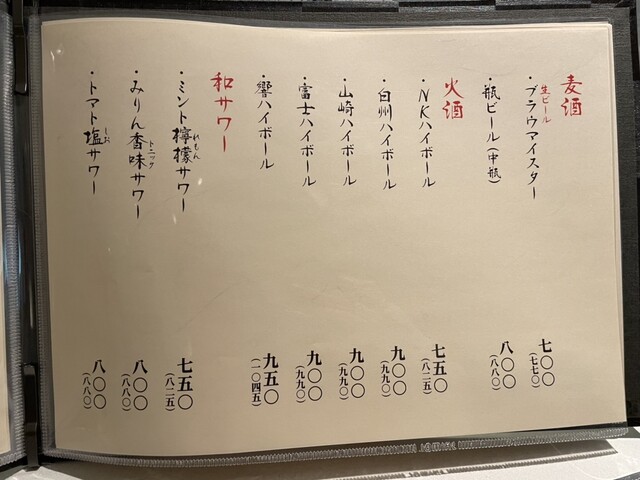 麦酒
・ブラウマイスター 七〇〇
生ビール
(七七〇)
・瓶ビール(中瓶) 八〇〇
(八八〇)
火酒
・NKハイボール 七五〇
(八二五)
・白州ハイボール 九〇〇
(九九〇)
・山崎ハイボール 九〇〇
(九九〇)
・富士ハイボール 九〇〇
(九九〇)
・響ハイボール 九五〇
(一〇四五)
和サワー
・ミント檸檬サワー 七五〇
れもん
(八二五)
・みりん香味サワー 八〇〇
トニック
(八八〇)
・トマト塩サワー 八〇〇
しお
(八八〇)